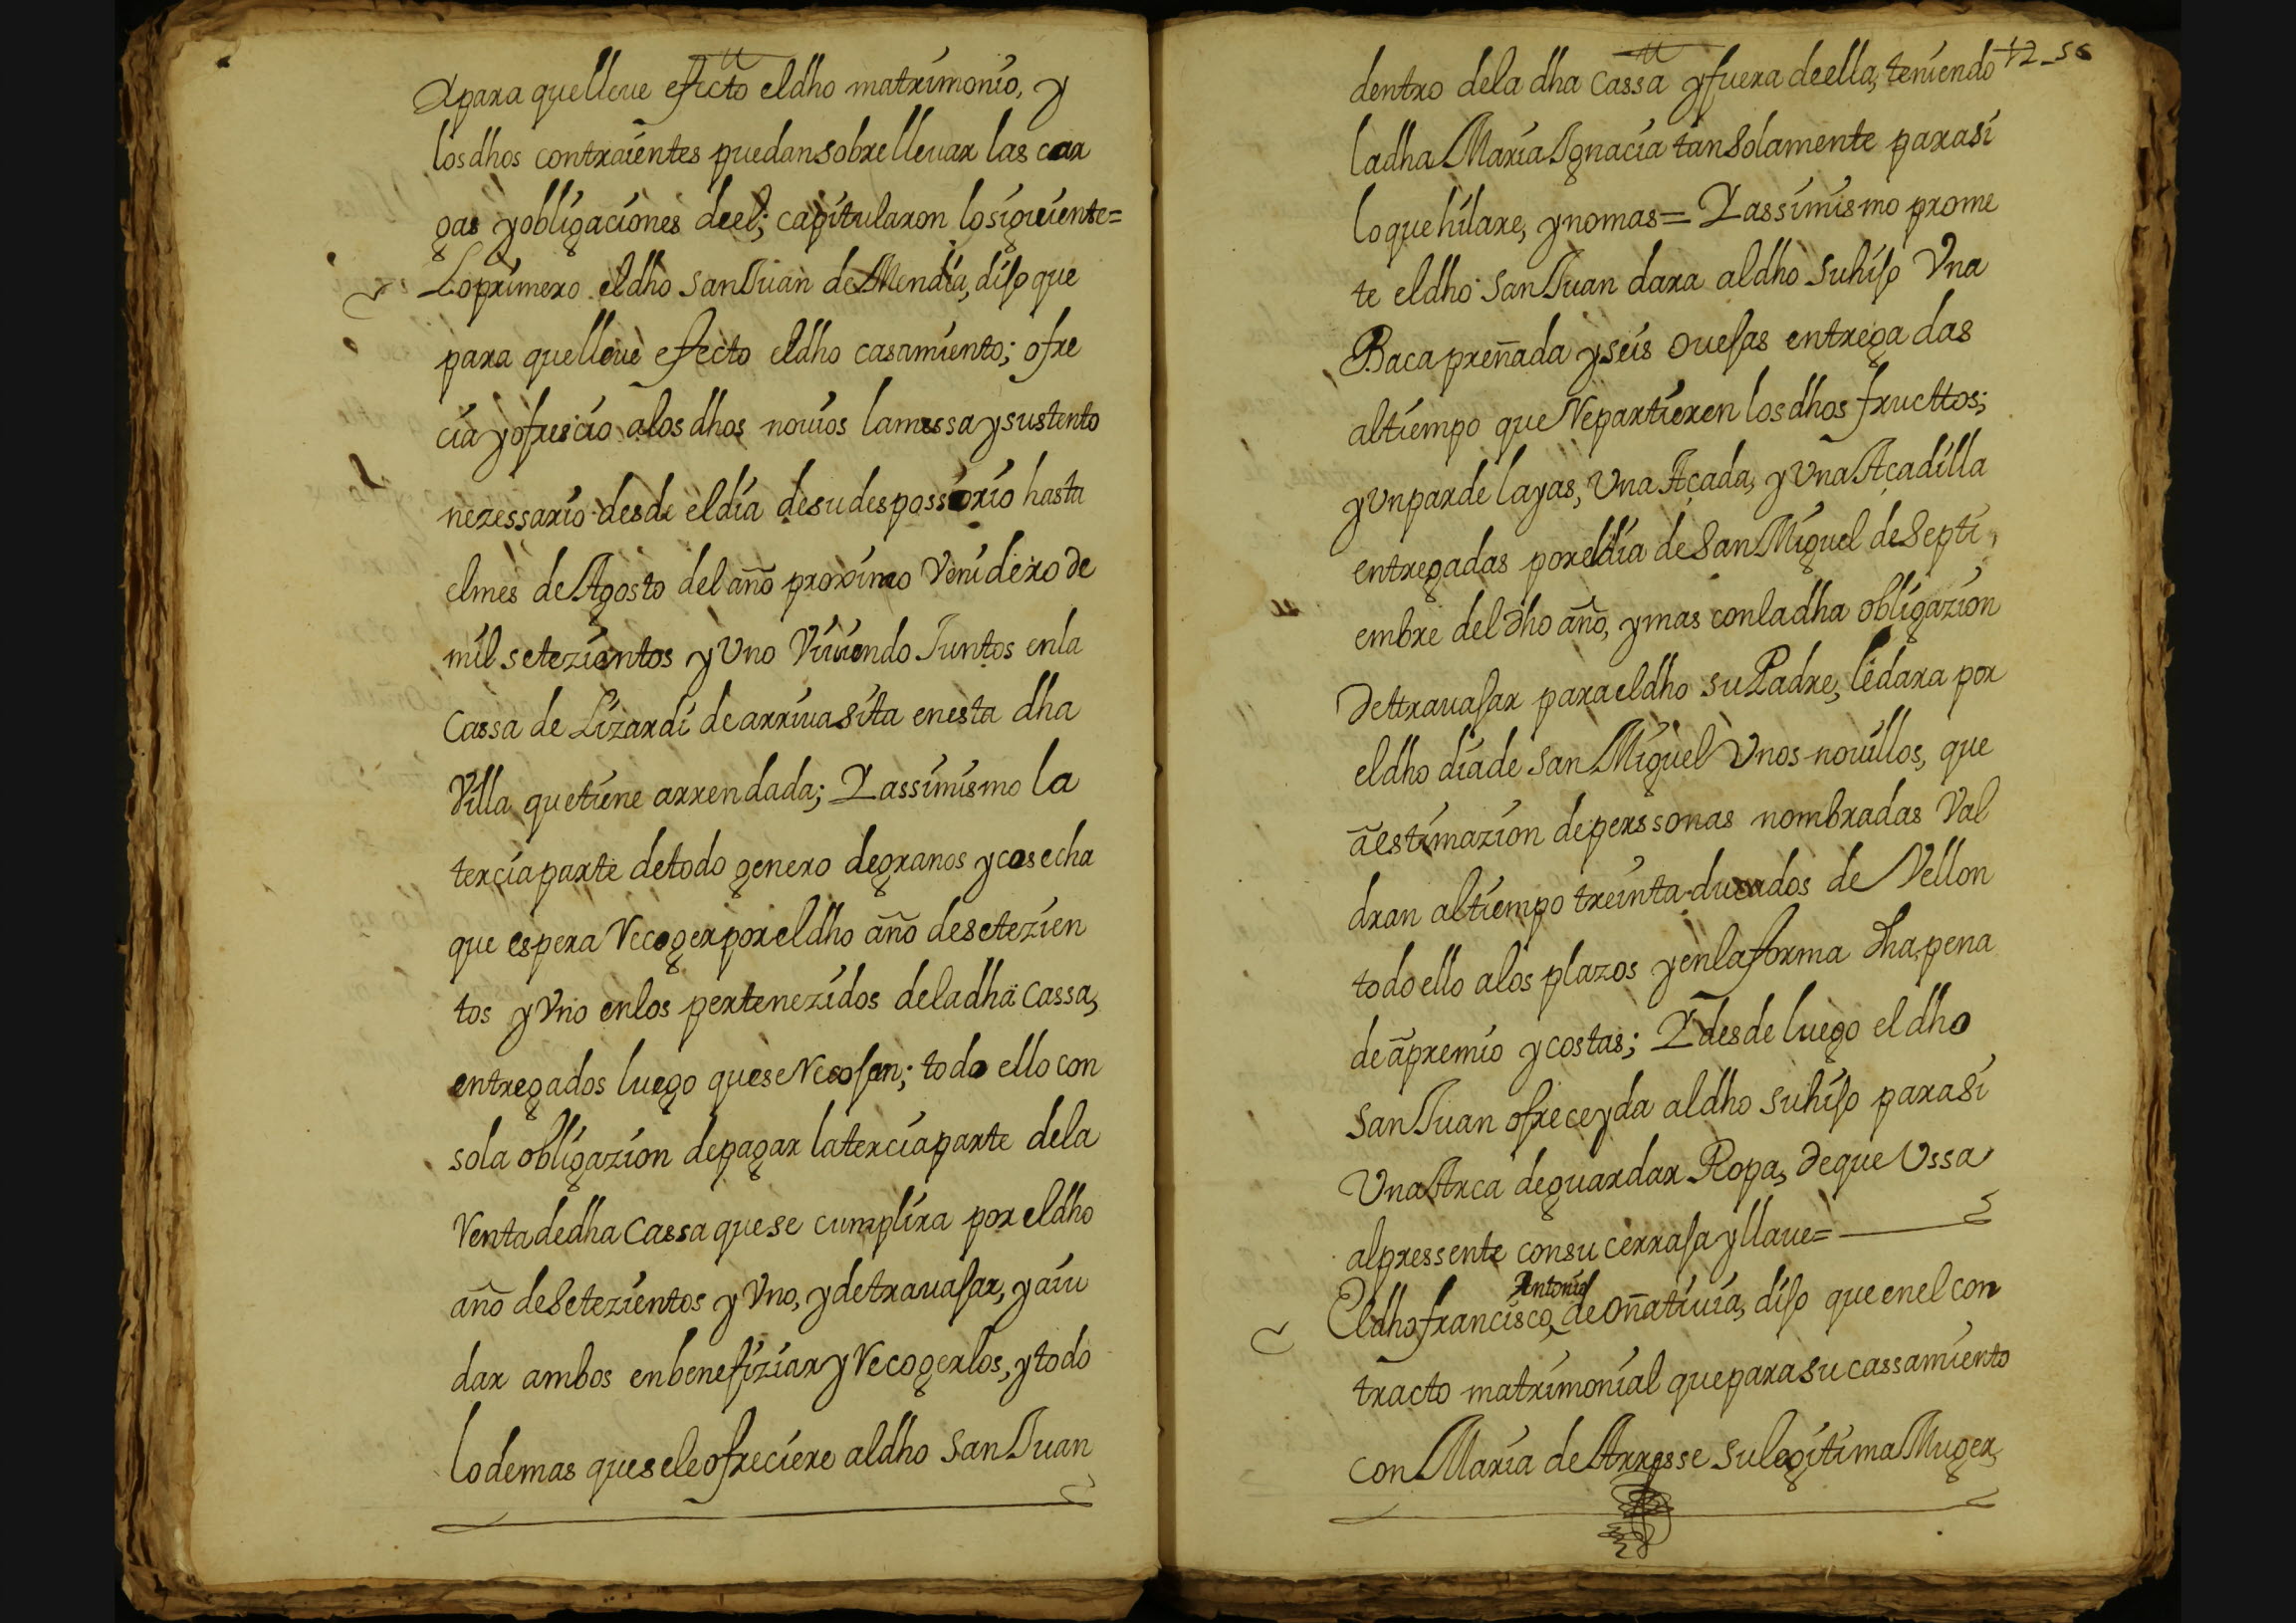 Y para que lleve efecto el dho matrimonio, y
los dhos contraientes puedan sobrellevar las car
gas y obligaciones de el; capitularon lo siguiente=
Lo primero el dho San Juan de Mendia, dijo que
para que lleve efecto el dho casamiento; ofre
cia y ofrescio a los dhos novios la messa y sustento
nezessario desde el dia de su despossorio hasta
el mes de Agosto del año proximo venidero de
mil setezientos y Uno Viuiendo Juntos en la
Cassa de Lizardi de arriua sita en esta dha
Villa que tiene arrendada; Y assimismo la
tercia parte de todo genero de granos y cosecha
que espera Recoger por el dho año de setezien
tos y Uno en los pertenezidos de la dha Cassa,
entregados luego que se Recojan; todo ello con
sola obligazion de pagar la tercia parte de la
Renta de dha Cassa que se cumplira por el dho
año de Setezientos y Uno, y de trauajar, y aiu
dar ambos en benefiziar y Recogerlos, y todo
lo demas que se le ofreciere al dho San Juan
dentro de la dha Cassa y fuera de ella, teniendo
la dha Maria Ignacia tan Solamente para si
lo que hilare, y no mas= Y assimismo prome
te el dho San Juan dara al dho su hijo Una
Baca preñada y seis ouejas entregadas
al tiempo que Repartieren los dhos fructtos;
y Un par de layas, Una Açada, y Una Açadilla
entregadas por el dia de San Miguel de Septi
embre del dho año, y mas con la dha obligazion
de ttrauajar para el dho su Padre, le dara por
el dho dia de San Miguel Unos nouillos, que
a estimazion de perssonas nombradas Val
dran al tiempo treinta ducados de Vellon
todo ello a los plazos y en la forma dha, pena
de apremio y costas; Y desde luego el dho
San Juan ofrece y da al dho su hijo para si
Una Arca de guardar Ropa, de que Ussa
al pressente con su cerraja y llaue=
Antonio
El dho francisco, de Oñatiuia, dijo que en el con
tracto matrimonial que para su cassamiento
con Maria de Arresse su legitima Muger,